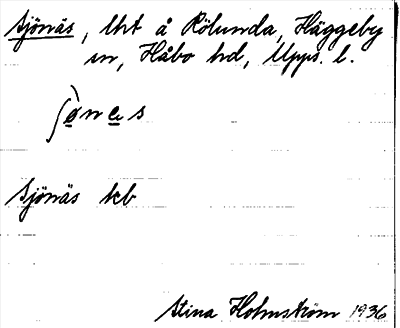 Sjönäs, lht å Rölunda, Häggeby
sn, Håbo hd, Upps. l.
Sjönäs kb
Stina Holmström 1936